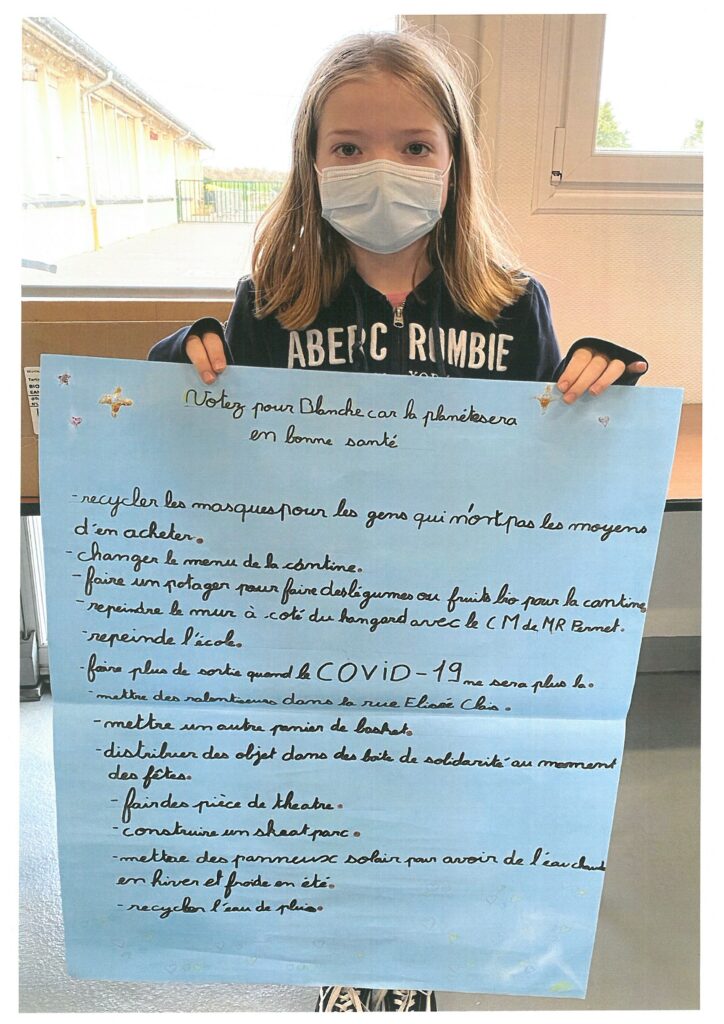 ABERCROMBIE
Votez pour Blanche car la planètesera
en bonne santé
-recycler les masques pour les gens qui n'ont pas les moyens
d'en acheter.
-changer le menu de la cantine.
-faire un potager pour faire des légumes ou fruits bio pour la cantine
-repeindre le mur à coté du hangard avec le CM de MR Pernet.
-repeinde l'école.
-faire plus de sortie quand le COVID-19 ne sera plus la.
-mettre des ralentiseurs dans la rue Elisée Clais.
-mettre un autre panier de basket.
-distribuer des objet dans des boite de solidarité au moment
des fêtes.
-fair des pièce de theatre.
-construire un skeat parc.
-mettre des panneux solair pour avoir de l'eau chaude
en hiver et froide en été.
-recycler l'eau de pluie.